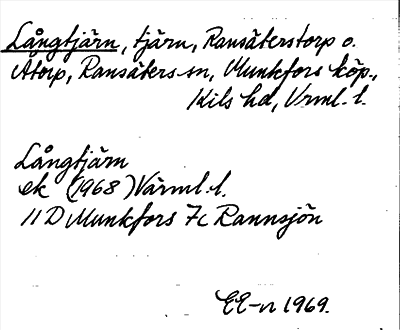 Långtjärn, tjärn, Ransäterstorp o.
Åtorp, Ransäters sn, Munkfors köp.,
Kils hd, Vrml. l.
Långtjärn
ek (1968) Värml. l.
11 D Munkfors 7c Rannsjön
EE-n 1969.